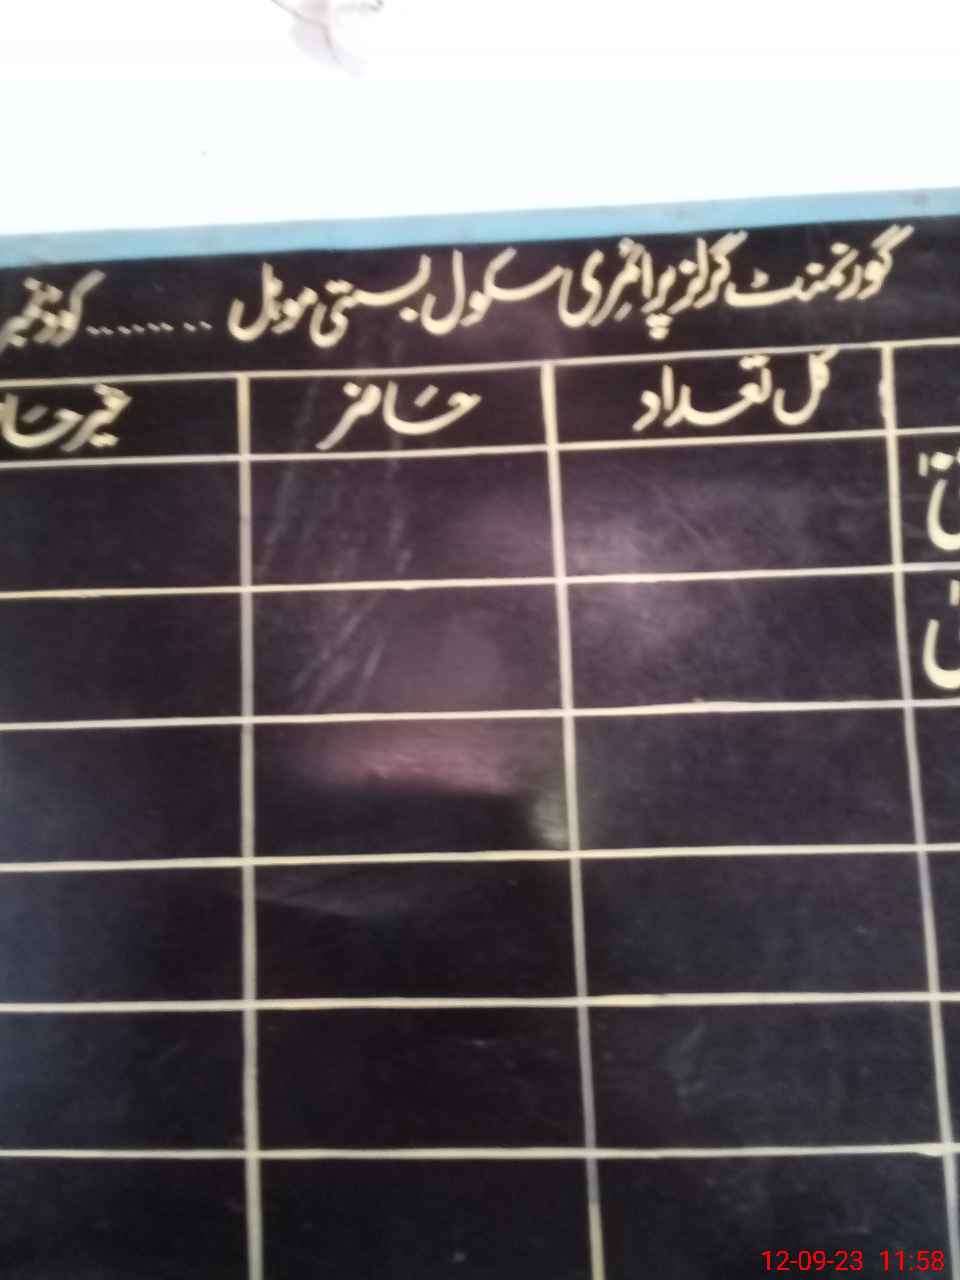 گورنمنٹ گرلز پرائمری سکول بستی موہل ........ کوڈ نمبر
کل تعداد حاضر غیر حا
12-09-23 11:58